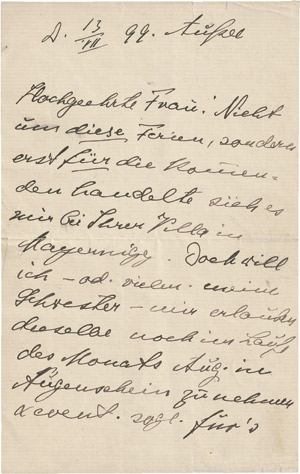 D. 13/VII 99. Aussee
Hochgeehrte Frau! Nicht
um diese Ferien, sondern
erst für die kommen=
den handelte sich es
mir bei Ihrer Villa in
Mayernigg. Doch will
ich – od. vielm. meine
Schwester – mir erlauben
dieselbe noch im Laufe
des Monats Aug. in
Augenschein zu nehmen
u event. sogl. für's